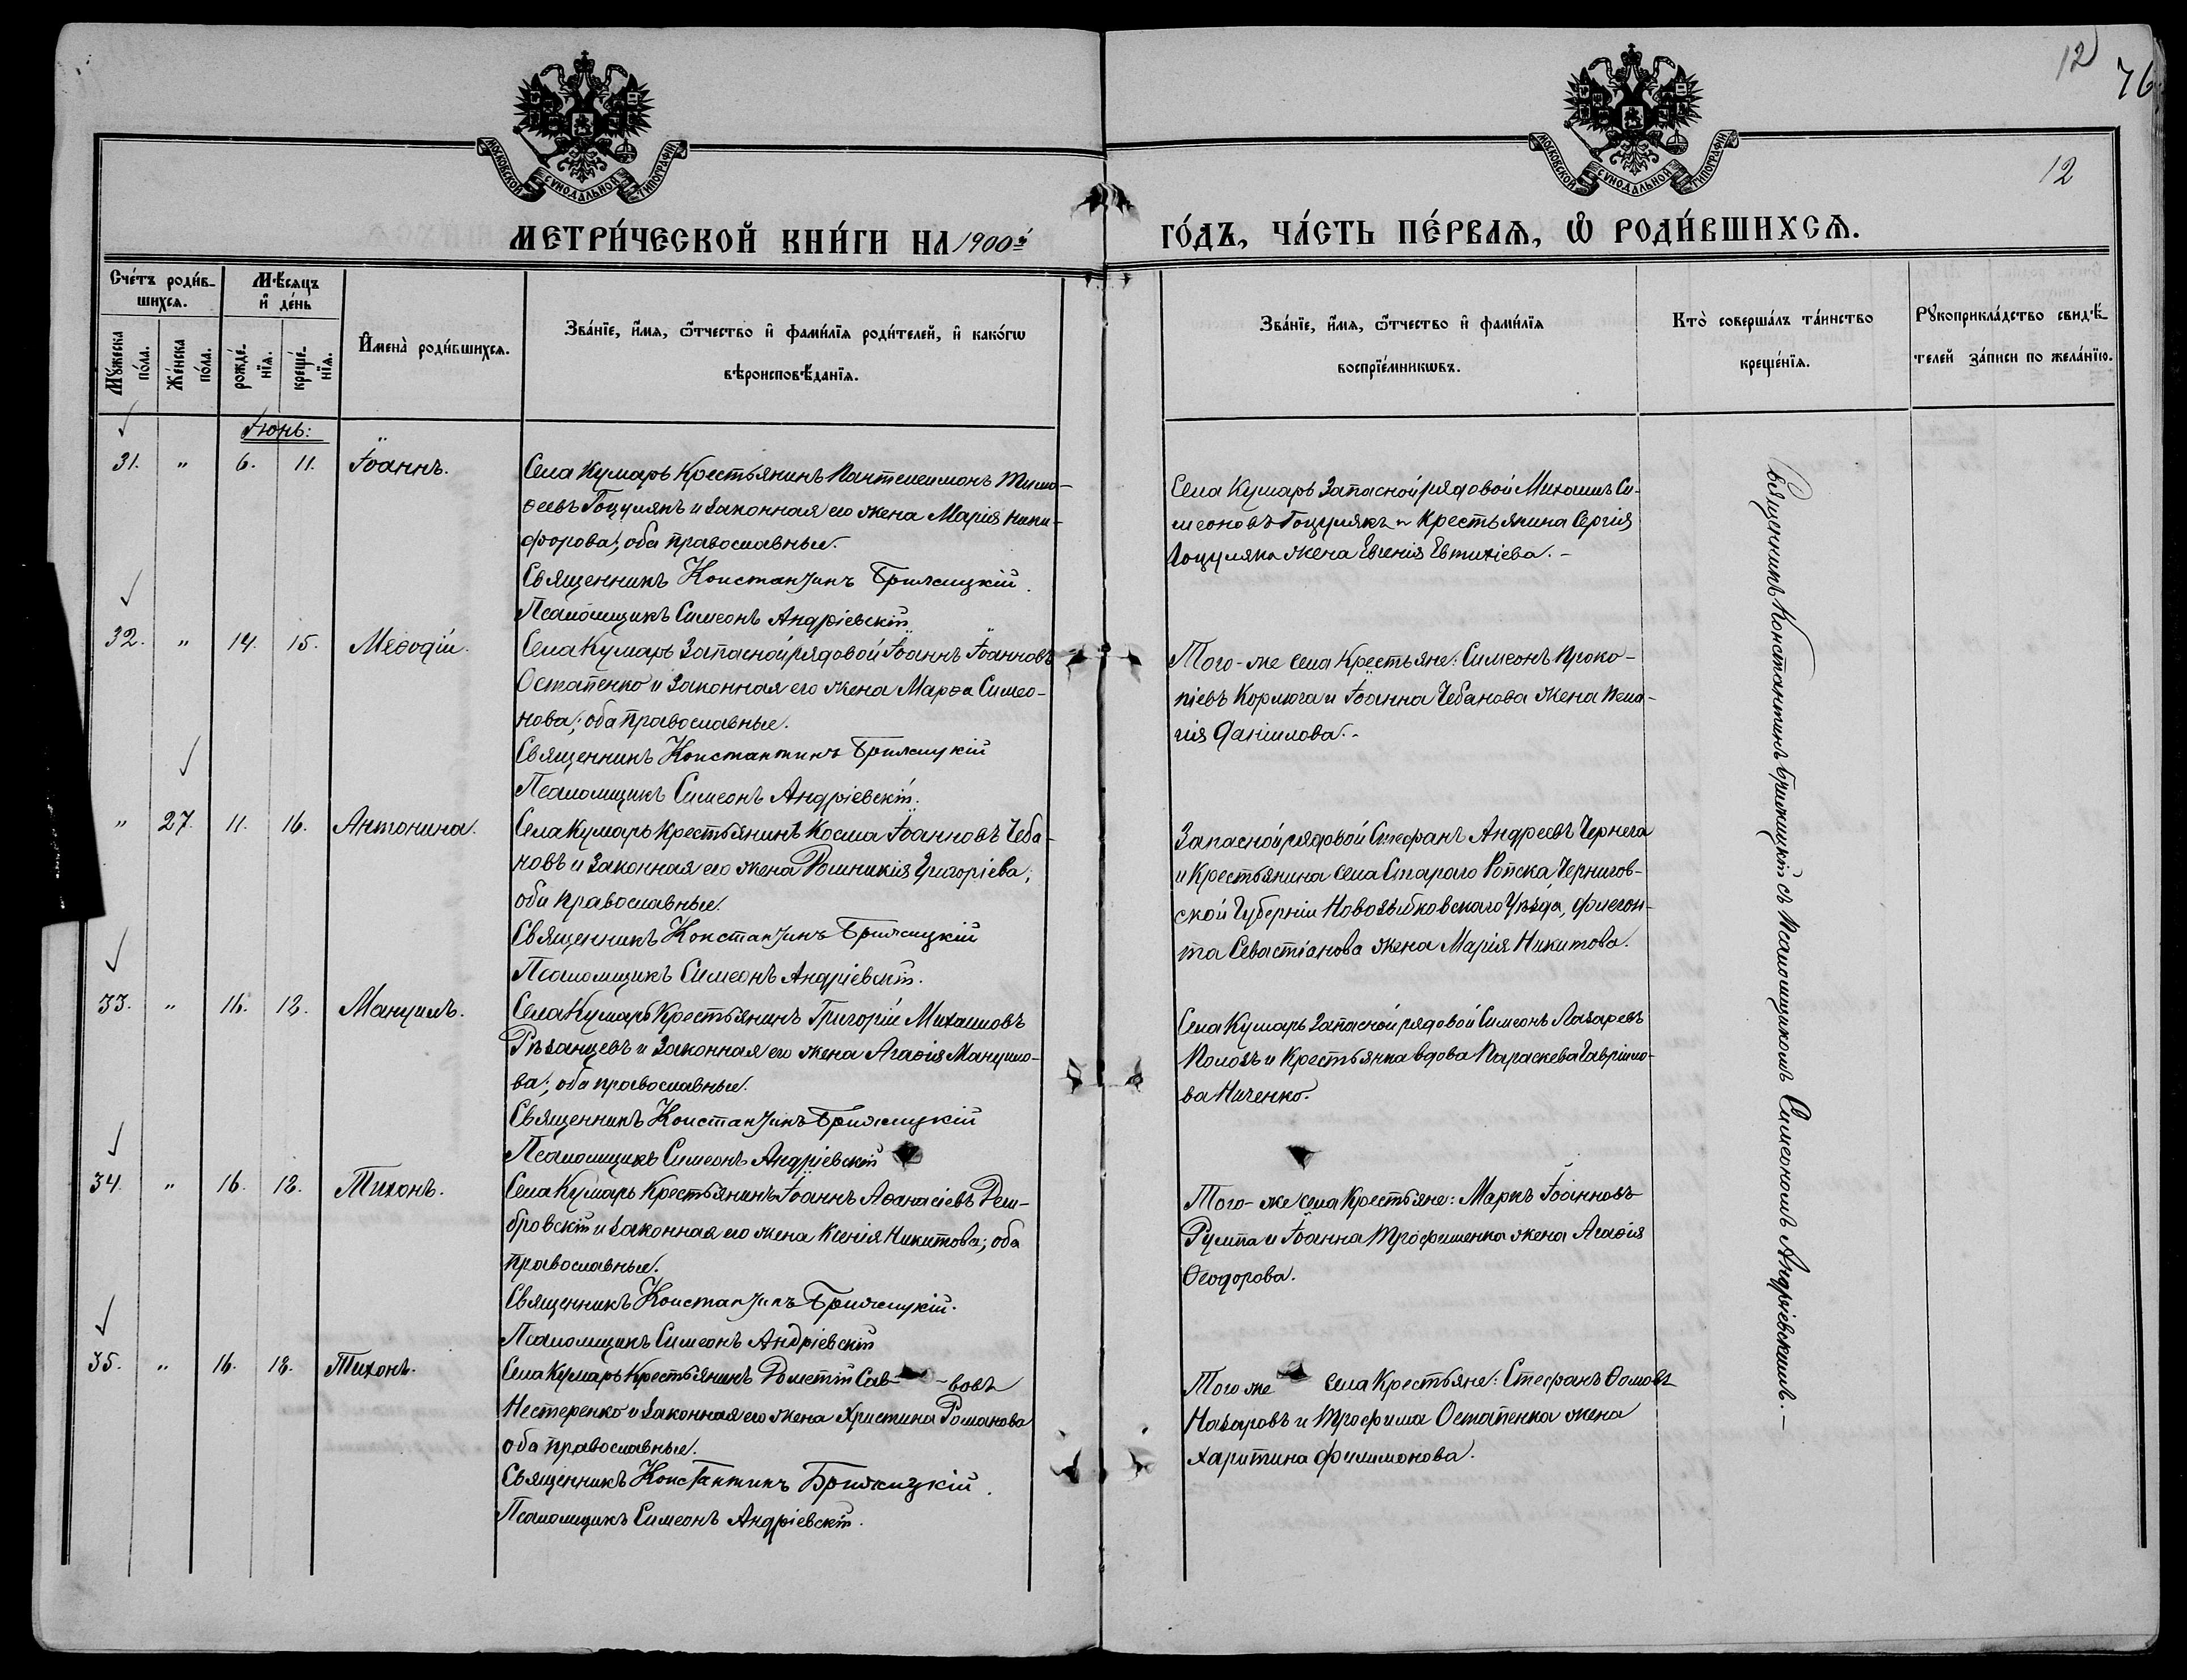 12
76
12
МОСКОВСКОЙ СѴНОДАЛЬНОЙ ТИПОГРАФІИ
МОСКОВСКОЙ СѴНОДАЛЬНОЙ ТИПОГРАФІИ
МЕТРИ́ЧЕСКОЙ КНИ́ГИ НА 1900й
ГО́ДЪ, ЧА́СТЬ ПЕ́РВАѦ, Ѡ РОДИ́ВШИХСѦ.
Сче́тъ роди́в-
шихсѧ.
Мѣ́сяцъ
и҆ де́нь
Мꙋ́жеска
по́ла.
Же́нска
по́ла.
рожде́-
нїѧ.
креще́-
нїѧ.
И҆мена̀ роди́вшихсѧ.
Зва́нїе, и҆́мѧ, ѻ҆́тчество и҆ фами́лїѧ роди́телей, и҆ како́гѡ
вѣроисповѣ́данїѧ.
Зва́нїе, и҆́мѧ, ѻ҆́тчество и҆ фами́лїѧ
воспрїе́мникѡвъ.
Кто̀ соверша́лъ та́инство
креще́нїѧ.
Рꙋкоприкла́дство свидѣ́-
телей за́писи по жела́нїю.
Іюнь:
31. " 6. 11. Іоаннъ.
Села Кумарь Крестьянинъ Пантелеимонъ Тимо-
ѳеевъ Гоцулякъ и законная его жена Марія Ники-
форова; оба православные.
Священникъ Константинъ Брижицкій.
Псаломщикъ Симеонъ Андріевскій
Села Кумарь Запасной рядовой Михаилъ Си-
меоновъ Гоцулякъ и Крестьянина Сергія
Гоцуляка жена Евгенія Евтихіева.-
32. " 14. 15. Меѳодій.
Села Кумарь Запасной рядовой Іоаннъ Іоанновъ
Остапенко и законная его жена Марѳа Симео-
нова; оба православные.
Священникъ Константинъ Брижицкій
Псаломщикъ Симеонъ Андріевскій.
Того-же села Крестьяне: Симеонъ Проко-
піевъ Кормога и Іоанна Чебанова жена Пела-
гія Даніилова.-
" 27. 11. 16. Антонина.
Села Кумарь Крестьянинъ Косма Іоанновъ Чеба-
новъ и законная его жена Домникія Григоріева;
оба православные.
Священникъ Константинъ Брижицкій
Псаломщикъ Симеонъ Андріевскій.
Запасной рядовой Стефанъ Андреевъ Чернега
и Крестьянина села Стараго Ропска, Чернигов-
ской Губерніи Новозыбковскаго Уѣзда, Флегон-
та Севастіанова жена Марія Никитова.
33. " 16. 18. Мануилъ.
Села Кумарь Крестьянинъ Григорій Михаиловъ
Рѣзанцевъ и законная его жена Агаѳія Мануило-
ва; оба православные.
Священникъ Константинъ Брижицкій
Псаломщикъ Симеонъ Андріевскій
Села Кумарь Запасной рядовой Симеонъ Лазаревъ
Полозъ и Крестьянка вдова Параскева Гавріило-
ва Ниченко.
34. " 16. 18. Тихонъ.
Села Кумарь Крестьянинъ Іоаннъ Аѳанасіевъ Дом-
бровскій и законная его жена Ксенія Никитова; оба
православные.
Священникъ Константинъ Брижицкій.
Псаломщикъ Симеонъ Андріевскій
Того-же села Крестьяне: Маркъ Іоанновъ
Румпа и Іоанна Трофименка жена Агаѳія
Ѳеодорова.
35. " 16. 18. Тихонъ.
Села Кумарь Крестьянинъ Дометій Сав- -вовъ
Нестеренко и законная его жена Христина Романова
оба православные.
Священникъ Константинъ Брижицкій.
Псаломщикъ Симеонъ Андріевскій.
Того же села Крестьяне: Стефанъ Ѳомовъ
Назаровъ и Трофима Остапенка жена
Харитина Филимонова.
Священникъ Константинъ Брижицкій съ Псаломщикомъ Симеономъ Андріевскимъ.-